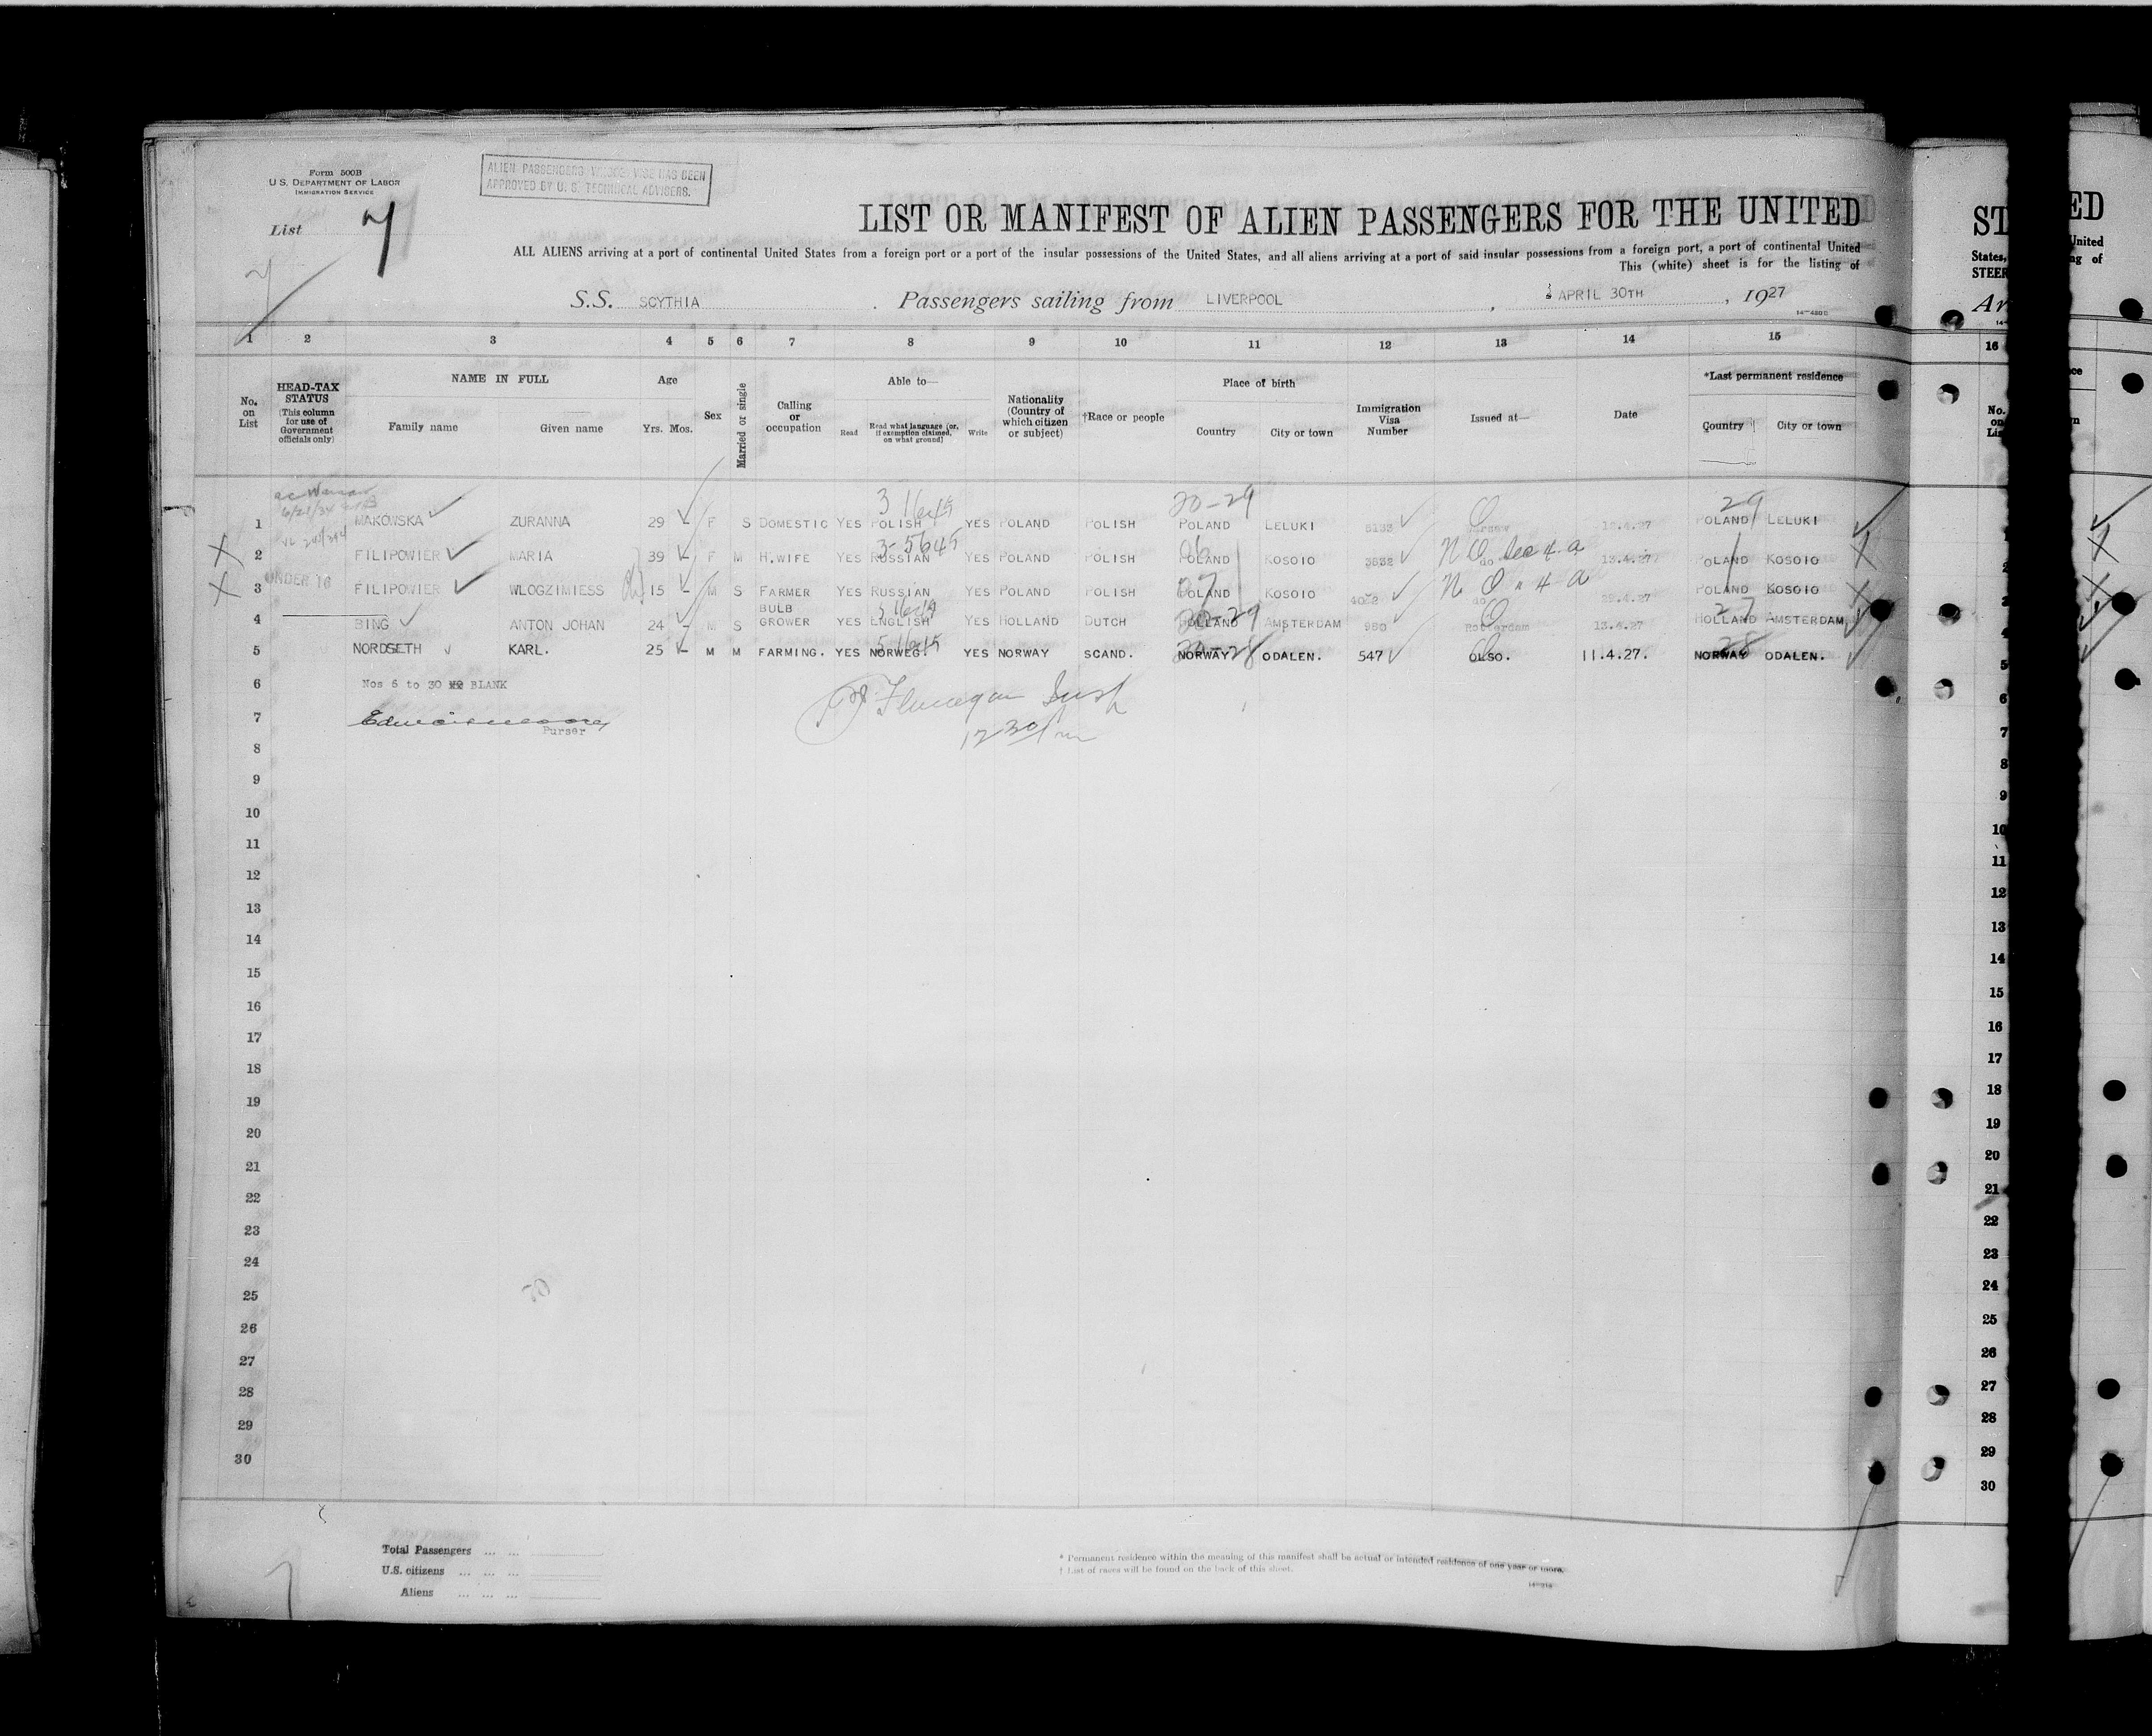 Form 500B
U.S. DEPARTMENT OF LABOR
IMMIGRATION SERVICE
ALIEN PASSENGERS WHOSE VISE HAS BEEN
APPROVED BY U. S. TECHNICAL ADVISERS.
List 7
LIST OR MANIFEST OF ALIEN PASSENGERS FOR THE UNITED
ALL ALIENS arriving at a port of continental United States from a foreign port or a port of the insular possessions of the United States, and all aliens arriving at a port of said insular possessions from a foreign port, a port of continental United
This (white) sheet is for the listing of
S.S. SCYTHIA . Passengers sailing from LIVERPOOL , APRIL 30TH , 1927
1 2 3 4 5 6 7 8 9 10 11 12 13 14 15
No. on List
HEAD-TAX STATUS (This column for use of Government officials only)
NAME IN FULL
Family name Given name
Age
Yrs. Mos.
Sex
Married or single
Calling or occupation
Able to—
Read Read what language (or, if exemption claimed, on what ground) Write
Nationality (Country of which citizen or subject)
†Race or people
Place of birth
Country City or town
Immigration Visa Number
Issued at—
Date
*Last permanent residence
Country City or town
3 16 45 20-29 29
1 MAKOWSKA ZURANNA 29 F S DOMESTIC YES POLISH YES POLAND POLISH POLAND LELUKI 12.4.27 POLAND LELUKI
2 FILIPOWIER MARIA 39 - F M H.WIFE YES RUSSIAN YES POLAND POLISH POLAND KOSOIO 3832 do 13.4.27 POLAND KOSOIO
UNDER 16
3 FILIPOWIER WLOGZIMIESS 15 - M S FARMER YES RUSSIAN YES POLAND POLISH POLAND KOSOIO do POLAND KOSOIO
4 BING ANTON JOHAN 24 - M S BULB GROWER YES ENGLISH YES HOLLAND DUTCH HOLLAND AMSTERDAM 980 Rotterdam 13.4.27 HOLLAND AMSTERDAM
5 NORDSETH KARL. 25 - M M FARMING. YES NORWEG. YES NORWAY SCAND. NORWAY ODALEN. 547 OLSO. 11.4.27. NORWAY ODALEN.
6 Nos 6 to 30 BLANK
7
Purser
12 30 pm
8
9
10
11
12
13
14
15
16
17
18
19
20
21
22
23
24
25
26
27
28
29
30
Total Passengers ... ...
U.S. citizens ... ... ...
Aliens ... ... ...
* Permanent residence within the meaning of this manifest shall be actual or intended residence of one year or more.
† List of races will be found on the back of this sheet.
ST
States,
STEER
Ar
16
No. on Lis
10
11
12
13
14
15
16
17
18
19
20
21
22
23
24
25
26
27
28
29
30
ED
United
ng of